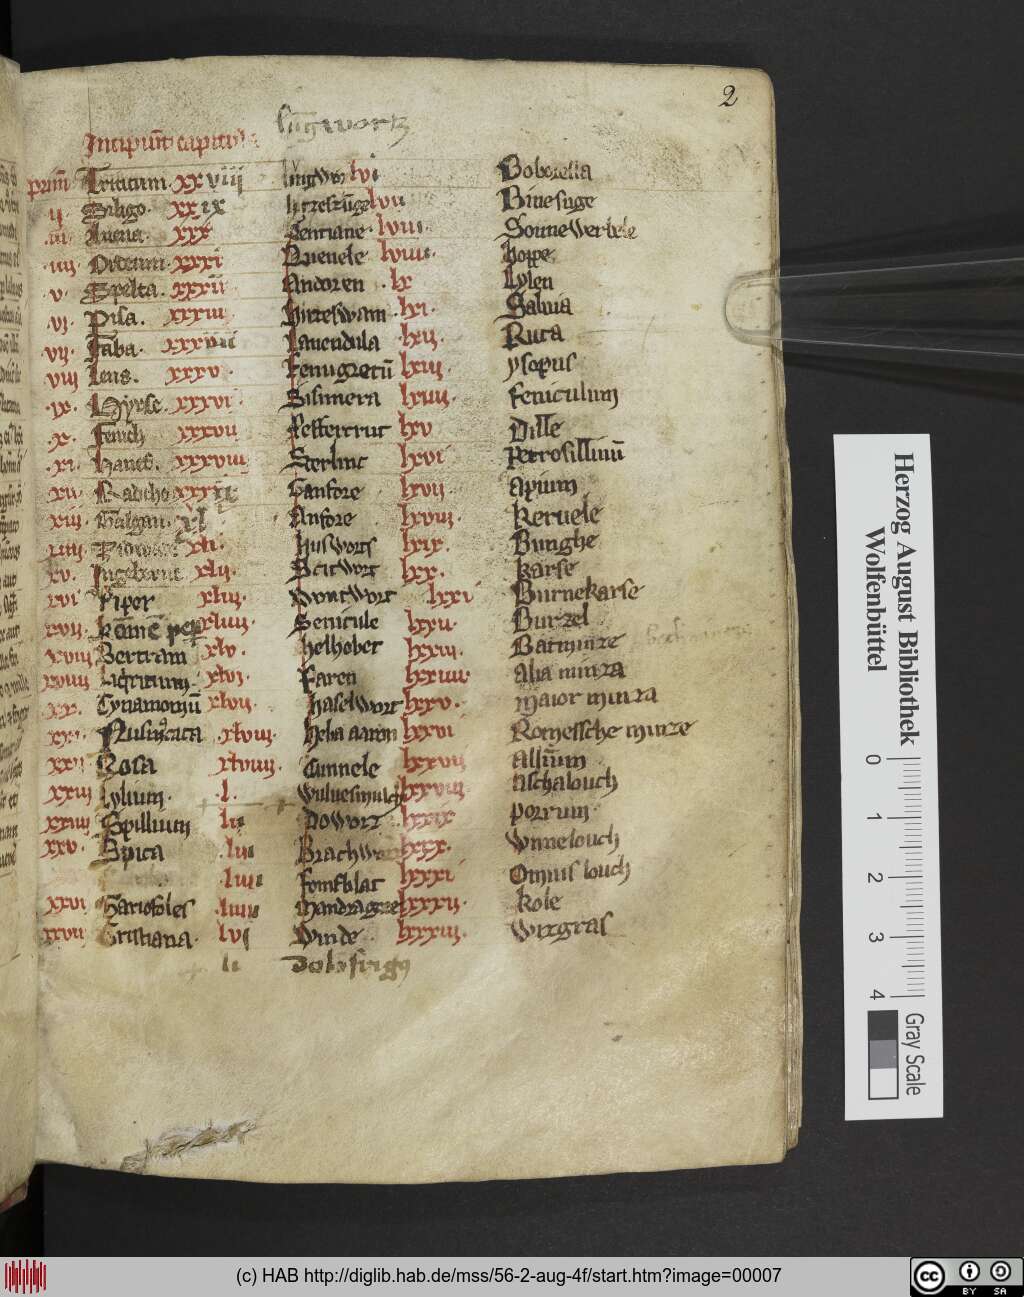 2
Incipiunt capitula
lungwortz
primum Triticum xxviii lungwor lvi Boborella
ii Siligo xxix hirzeszunge lvii Binesuge
iii Auena xxx Gentiane lviii Sonnewerbele
iiii Ordeum xxxi Quenele lviiii hoppe
v Spelta xxxii Andoren lx Lylen
vi Pisa xxxiii hirzeswam lxi Saluia
vii Faba xxxiiii lauendula lxii Ruta
viii lens xxxv Fenugrecū lxiii ysopus
ix Hyrse xxxvi Sisimera lxiiii Feniculum
x Fenich xxxvii lxv Dille
xi Hanef xxxviii Sterlinc lxvi Petrosillinū
xii xxxix Sanfore lxvii Apium
xiii Galgan xl Anfore lxviii Keruele
xiiii xli huswortz lxix Bunghe
xv xlii Scitwort lxx karse
xvi Piper xliii Wntwort lxxi Burnekarse
xvii xliiii Senicule lxxii Burzel
xviii Bertram xlv helhobet lxxiii Batminze
xviiii Liqiritium xlvi Faren lxxiiii Alia minza
xx Cynamomū xlvii haselwort lxxv maior minza
xxi Nusmucata xlviii heba aaron lxxvi Romessche minze
xxii Rosa xlviiii Cunnele lxxvii Allium
xxiii Lylium l lxxviii Aschalouch
xxiiii Spillium li Dowort lxxix porrum
xxv Spica lii Brachwor lxxx Wnnelouch
liii lxxxi louch
xxvi Gariofoles liiii mandragore lxxxii kole
xxvii Cristiana lv Winde lxxxiii Wizgras
li
Herzog August Bibliothek
Wolfenbüttel
0 1 2 3 4
Gray Scale
(c) HAB http://diglib.hab.de/mss/56-2-aug-4f/start.htm?image=00007
cc BY SA